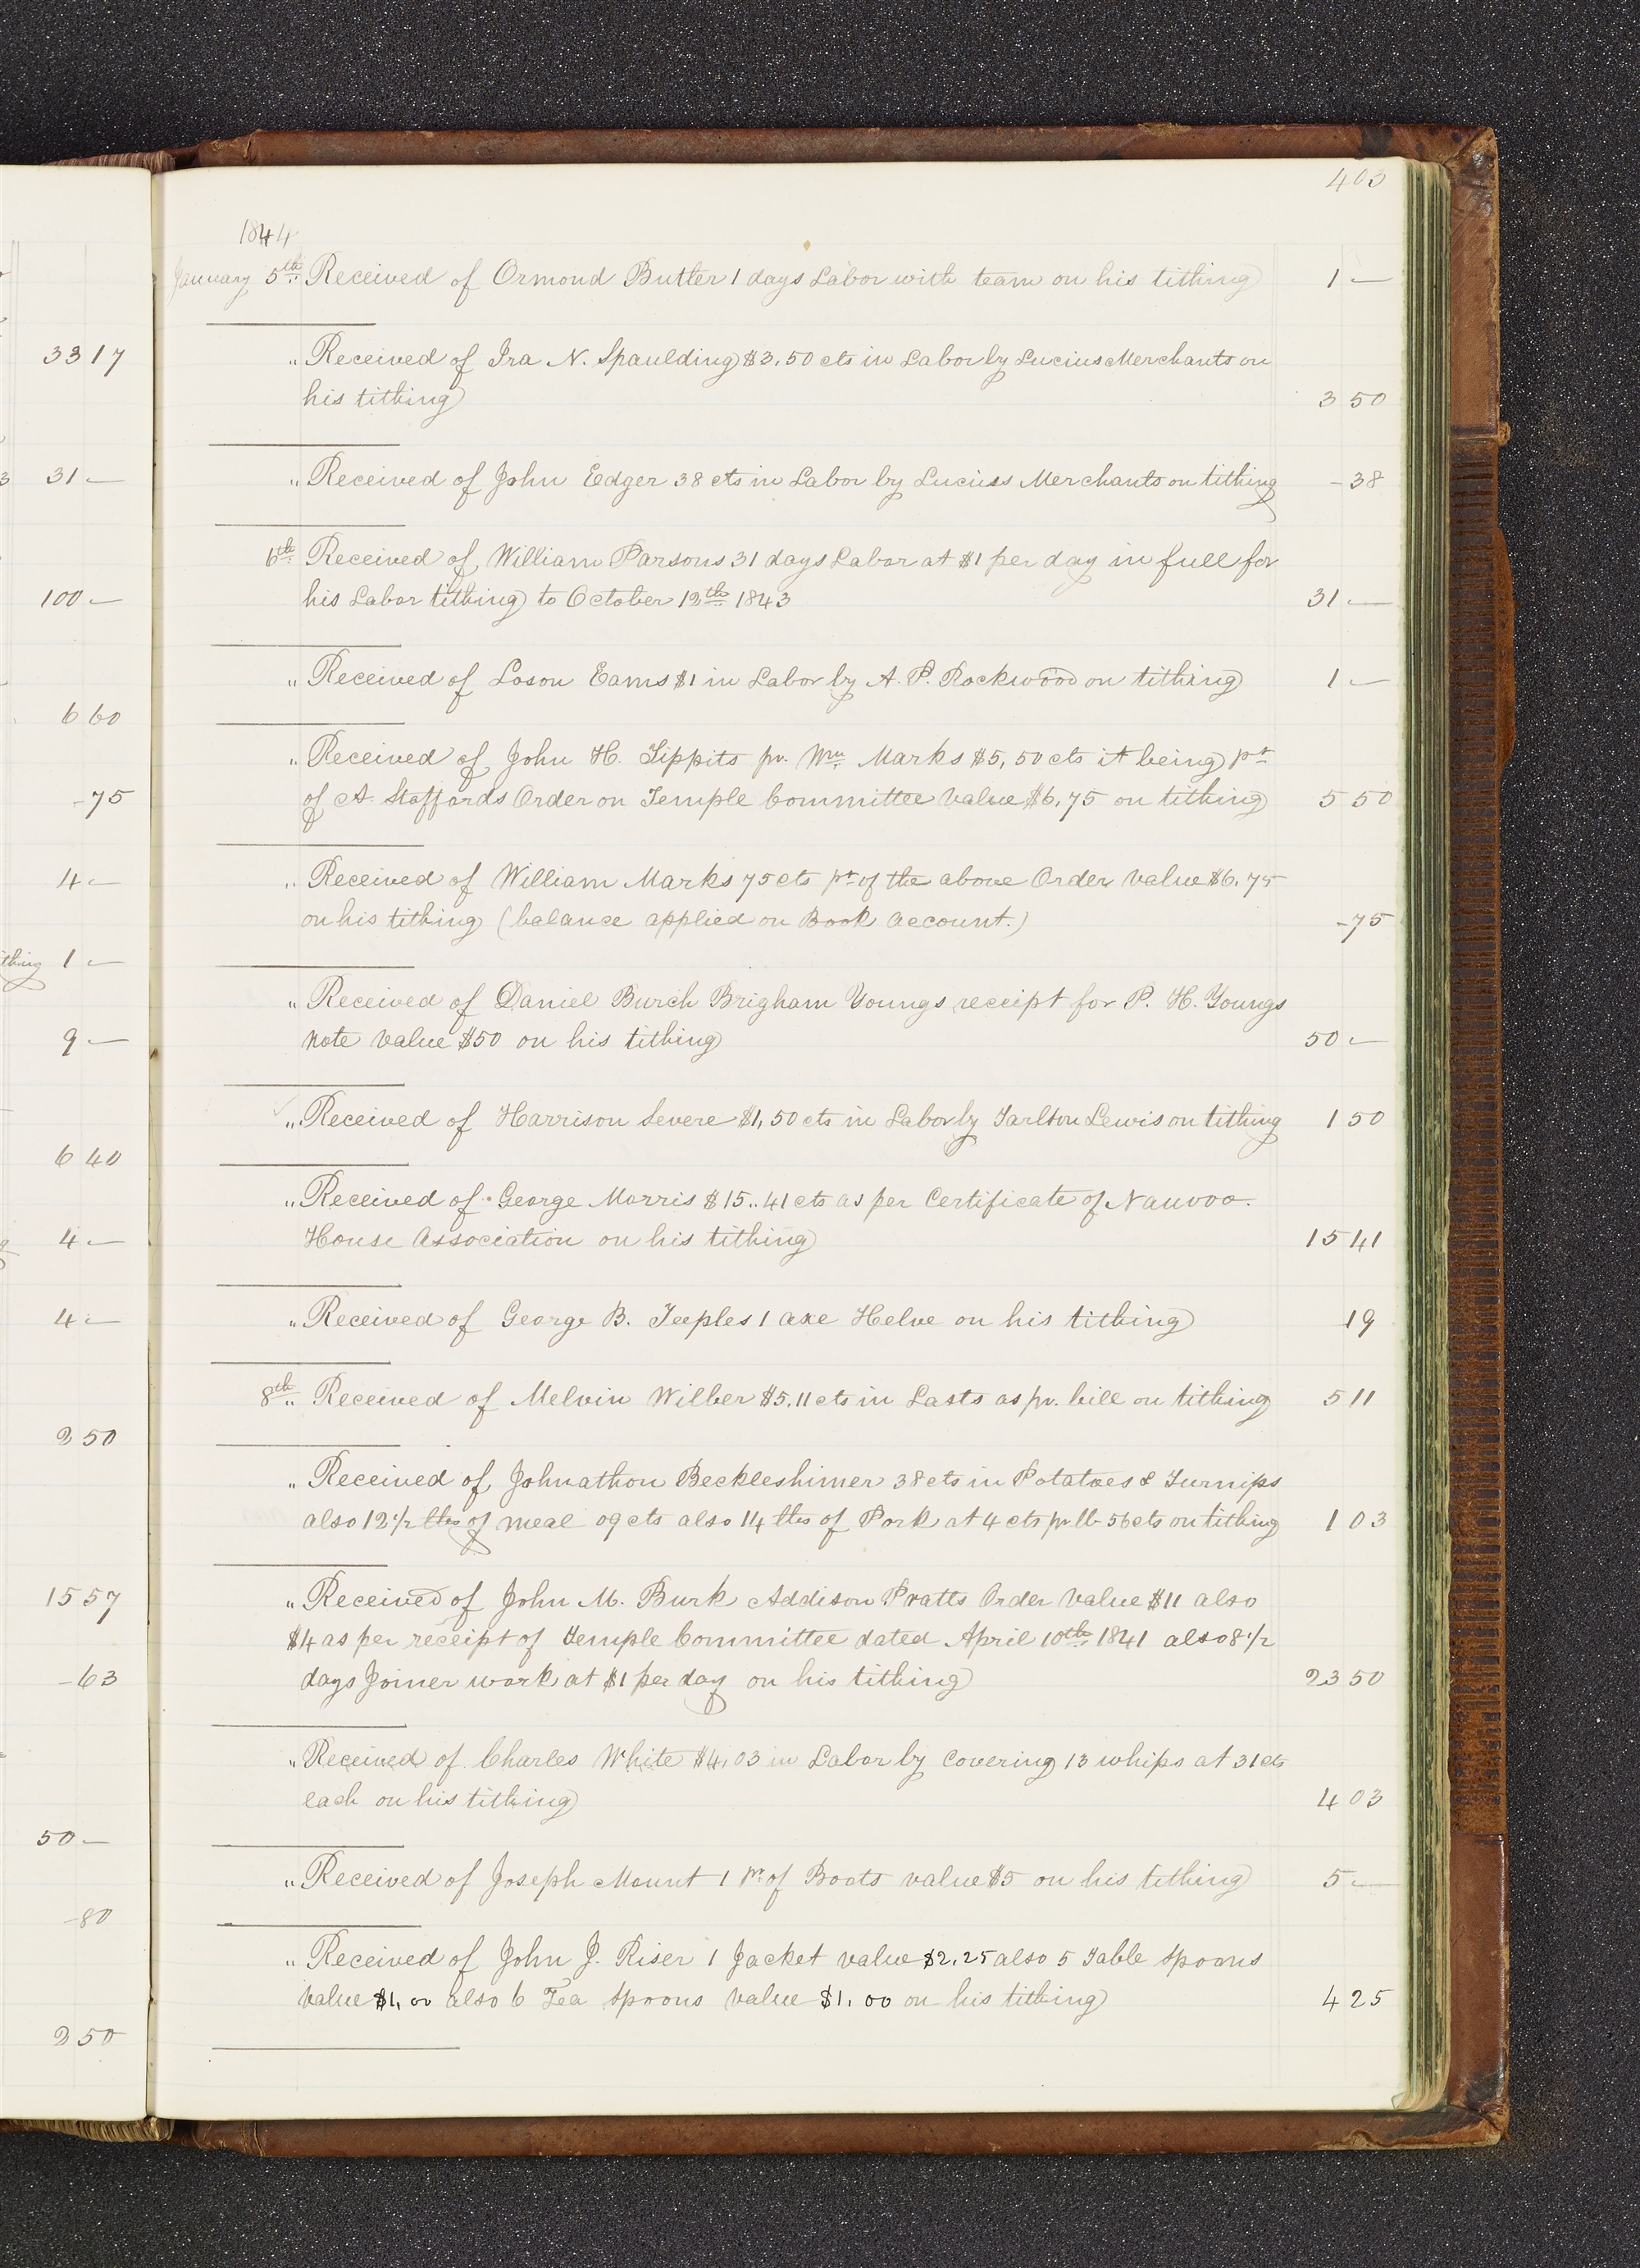 403
1844
January 5th Received of Ormond Butler 1 days Labor with team on his tithing 1 —
" Received of Ira N. Spaulding $3.50 cts in Labor by Lucius Merchants on
his tithing 3 50
" Received of John Edger 38 cts in Labor by Lucius Merchants on tithing - 38
6th Received of William Parsons 31 days Labor at $1 per day in full for
his Labor tithing to October 12th 1843 31 —
" Received of Loson Eams $1 in Labor by A. P. Rockwood on tithing 1 —
" Received of John H. Tippits pr. Wm Marks $5,50 cts it being pt
of A. Staffords Order on Temple Committee value $6.75 on tithing 5 50
" Received of William Marks 75 cts pt of the above Order value $6.75
on his tithing (balance applied on Book account.) - 75
" Received of Daniel Burch Brigham Youngs receipt for P. H. Youngs
note value $50 on his tithing 50 —
" Received of Harrison Severe $1,50 cts in Labor by Tarlton Lewis on tithing 1 50
" Received of George Morris $15..41 cts as per Certificate of Nauvoo.
House Association on his tithing 15 41
" Received of George B. Teeples 1 axe Helve on his tithing 19
8th " Received of Melvin Wilber $5.11 cts in Lasts as pr. bill on tithing 5 11
" Received of Johnathon Beckleshimer 38 cts in Potatoes & Turnips
also 12 1/2 lbs of meal 09 cts also 14 lbs of Pork at 4 cts pr lb 56 cts on tithing 1 03
" Received of John M. Burk Addison Pratts Order value $11 also
$4 as per receipt of Temple Committee dated April 10th 1841 also 8 1/2
days Joiner work at $1 per day on his tithing 23 50
" Received of Charles White $4.03 in Labor by covering 13 whips at 31 cts
each on his tithing 4 03
" Received of Joseph Mount 1 pr of Boots value $5 on his tithing 5 —
" Received of John J. Riser 1 Jacket value $2.25 also 5 Table spoons
value $1.00 also 6 Tea spoons value $1.00 on his tithing 4 25
33 17
31 —
100 —
6 60
- 75
4 —
1 —
9 —
6 40
4 —
4 —
2 50
15 57
- 63
50 —
- 80
2 50